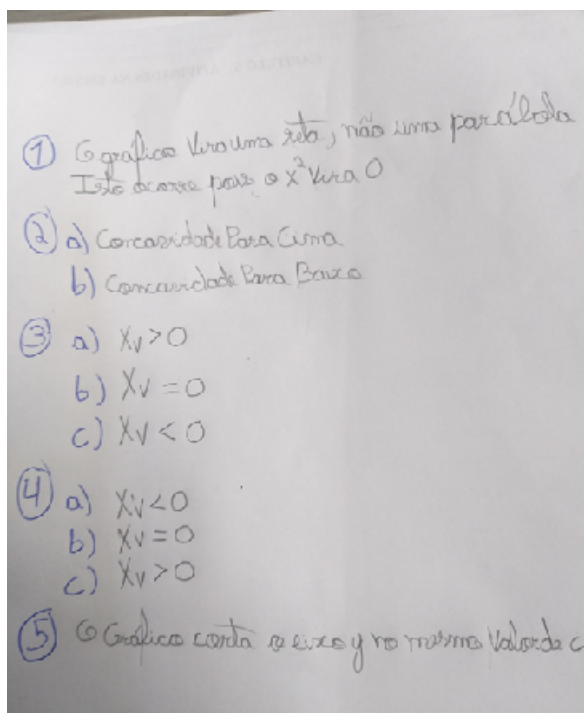 ① O gráfico vira uma reta, não uma parábola
Isto ocorre pois o x² vira 0
② a) Concavidade Para Cima
b) Concavidade Para Baixo
③ a) Xv > 0
b) Xv = 0
c) Xv < 0
④ a) Xv < 0
b) Xv = 0
c) Xv > 0
⑤ O Gráfico corta o eixo y no mesmo Valor de c